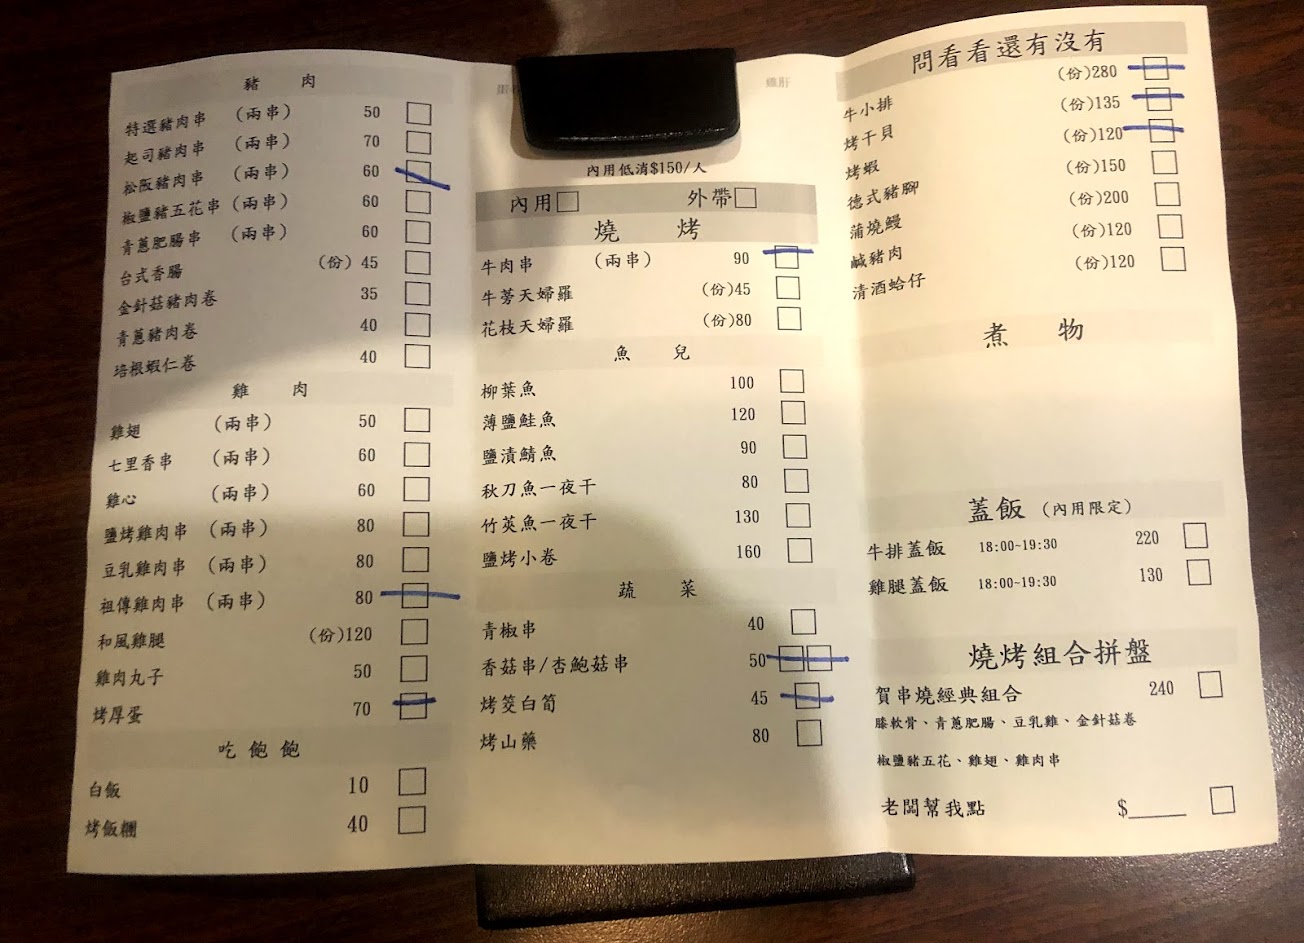 豬 肉
特選豬肉串 (兩串) 50
起司豬肉串 (兩串) 70
松阪豬肉串 (兩串) 60
椒鹽豬五花串 (兩串) 60
青蔥肥腸串 (兩串) 60
台式香腸 (份) 45
金針菇豬肉卷 35
青蔥豬肉卷 40
培根蝦仁卷 40
雞 肉
雞翅 (兩串) 50
七里香串 (兩串) 60
雞心 (兩串) 60
鹽烤雞肉串 (兩串) 80
豆乳雞肉串 (兩串) 80
祖傳雞肉串 (兩串) 80
和風雞腿 (份)120
雞肉丸子 50
烤厚蛋 70
吃飽飽
白飯 10
烤飯糰 40
雞肝
內用低消$150/人
內用 外帶
燒 烤
牛肉串 (兩串) 90
牛蒡天婦羅 (份)45
花枝天婦羅 (份)80
魚 兒
柳葉魚 100
薄鹽鮭魚 120
鹽漬鯖魚 90
秋刀魚一夜干 80
竹莢魚一夜干 130
鹽烤小卷 160
蔬 菜
青椒串 40
香菇串/杏鮑菇串 50
烤筊白筍 45
烤山藥 80
問看看還有沒有
牛小排 (份)280
烤干貝 (份)135
烤蝦 (份)120
德式豬腳 (份)150
蒲燒鰻 (份)200
鹹豬肉 (份)120
清酒蛤仔 (份)120
煮 物
蓋飯 (內用限定)
牛排蓋飯 18:00~19:30 220
雞腿蓋飯 18:00~19:30 130
燒烤組合拼盤
賀串燒經典組合 240
膝軟骨、青蔥肥腸、豆乳雞、金針菇卷
椒鹽豬五花、雞翅、雞肉串
老闆幫我點 $______